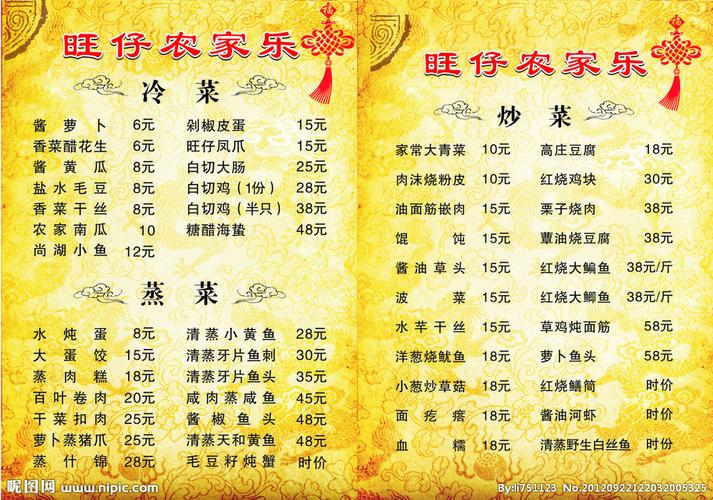 旺仔农家乐
福
冷 菜
酱萝卜 6元 剁椒皮蛋 15元
香菜醋花生 6元 旺仔凤爪 15元
酱黄瓜 8元 白切大肠 25元
盐水毛豆 8元 白切鸡(1份) 28元
香菜干丝 8元 白切鸡(半只) 38元
农家南瓜 10 糖醋海蛰 48元
尚湖小鱼 12元
蒸 菜
水炖蛋 8元 清蒸小黄鱼 28元
大蛋饺 15元 清蒸牙片鱼刺 30元
蒸肉糕 18元 清蒸牙片鱼头 35元
百叶卷肉 20元 咸肉蒸咸鱼 45元
干菜扣肉 25元 酱椒鱼头 48元
萝卜蒸猪爪 25元 清蒸天和黄鱼 48元
蒸什锦 28元 毛豆籽炖蟹 时价
昵图网 www.nipic.com
旺仔农家乐
福
炒 菜
家常大青菜 10元 高庄豆腐 18元
肉沫烧粉皮 10元 红烧鸡块 30元
油面筋嵌肉 15元 栗子烧肉 38元
馄饨 15元 蕈油烧豆腐 38元
酱油草头 15元 红烧大鳊鱼 38元/斤
菠菜 15元 红烧大鲫鱼 38元/斤
水芊干丝 15元 草鸡炖面筋 58元
洋葱烧鱿鱼 18元 萝卜鱼头 58元
小葱炒草菇 18元 红烧鳝筒 时价
面疙瘩 18元 酱油河虾 时价
血糯 18元 清蒸野生白丝鱼 时份
By:li751123 No.20120922122032005325